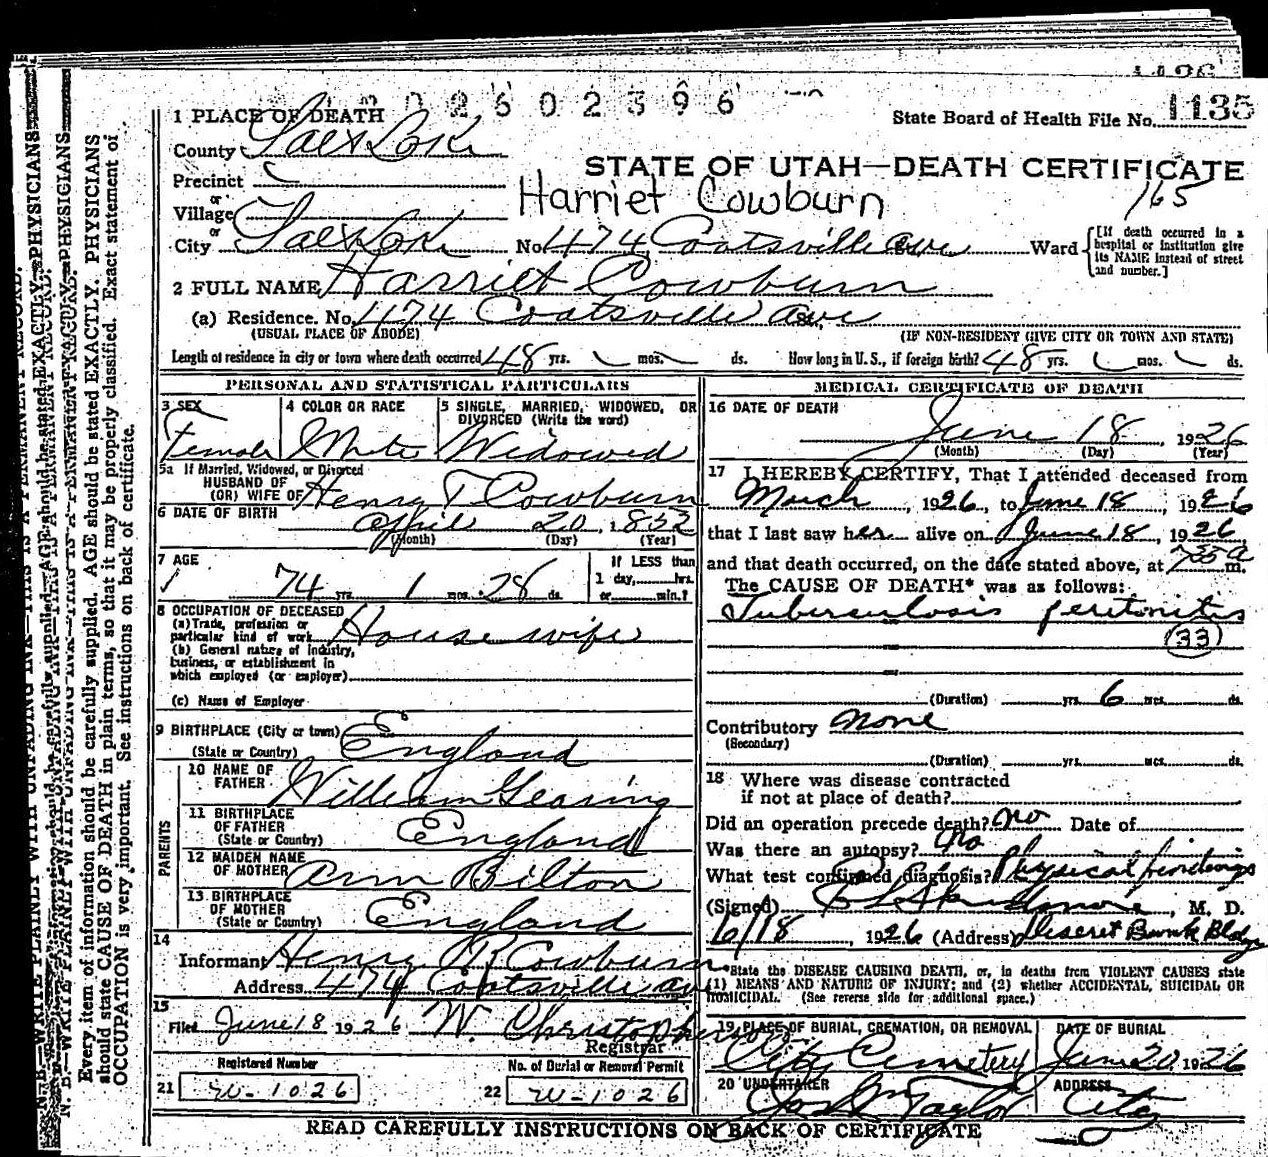 2602396
State Board of Health File No. 1135
1 PLACE OF DEATH
County Salt Lake
STATE OF UTAH—DEATH CERTIFICATE
Precinct
or
Harriet Cowburn
165
Village
or
City Salt Lake No. 474 Coatsville Ave Ward [If death occurred in a hospital or institution give its NAME instead of street and number.]
2 FULL NAME Harriet Cowburn
(a) Residence. No. 474 Coatsville Ave
(USUAL PLACE OF ABODE) (IF NON-RESIDENT GIVE CITY OR TOWN AND STATE)
Length of residence in city or town where death occurred 48 yrs. mos. ds. How long in U. S., if foreign birth? 48 yrs. mos. ds.
PERSONAL AND STATISTICAL PARTICULARS
3 SEX
Female
4 COLOR OR RACE
White
5 SINGLE, MARRIED, WIDOWED, OR
DIVORCED (Write the word)
Widowed
5a If Married, Widowed, or Divorced
HUSBAND OF
(OR) WIFE OF Henry T Cowburn
6 DATE OF BIRTH April 20, 1852
(Month) (Day) (Year)
7 AGE
74 yrs. 1 mos. 28 ds.
If LESS than
1 day, hrs.
or min.?
8 OCCUPATION OF DECEASED
(a) Trade, profession or
particular kind of work Housewife
(b) General nature of industry,
business, or establishment in
which employed (or employer)
(c) Name of Employer
9 BIRTHPLACE (City or town)
(State or Country) England
PARENTS
10 NAME OF
FATHER William Gearing
11 BIRTHPLACE
OF FATHER
(State or Country) England
12 MAIDEN NAME
OF MOTHER Ann Bilton
13 BIRTHPLACE
OF MOTHER
(State or Country) England
14
Informant Henry R Cowburn
Address 474 Coatsville Ave
15
Filed June 18 1926 W. Christopherson
Registrar
Registered Number
21 W-1026
No. of Burial or Removal Permit
22 W-1026
MEDICAL CERTIFICATE OF DEATH
16 DATE OF DEATH
June 18, 1926
(Month) (Day) (Year)
17 I HEREBY CERTIFY, That I attended deceased from
March, 1926, to June 18, 1926
that I last saw her alive on June 18, 1926
and that death occurred, on the date stated above, at 735 a m.
The CAUSE OF DEATH* was as follows:
Tuberculosis peritonitis
(33)
(Duration) yrs. 6 mos. ds.
Contributory none
(Secondary)
(Duration) yrs. mos. ds.
18 Where was disease contracted
if not at place of death?
Did an operation precede death? no Date of
Was there an autopsy? no
What test confirmed diagnosis? Physical findings
(Signed) , M. D.
6/18, 1926 (Address) Deseret Bank Bldg
*State the DISEASE CAUSING DEATH, or, in deaths from VIOLENT CAUSES state
(1) MEANS AND NATURE OF INJURY; and (2) whether ACCIDENTAL, SUICIDAL OR
HOMICIDAL. (See reverse side for additional space.)
19 PLACE OF BURIAL, CREMATION, OR REMOVAL
City Cemetery
DATE OF BURIAL
June 20 1926
20 UNDERTAKER
Jos Wm Taylor
ADDRESS
City
READ CAREFULLY INSTRUCTIONS ON BACK OF CERTIFICATE
N. B.—WRITE PLAINLY WITH UNFADING INK—THIS IS A PERMANENT RECORD.
Every item of information should be carefully supplied. AGE should be stated EXACTLY. PHYSICIANS
should state CAUSE OF DEATH in plain terms, so that it may be properly classified. Exact statement of
OCCUPATION is very important. See instructions on back of certificate.